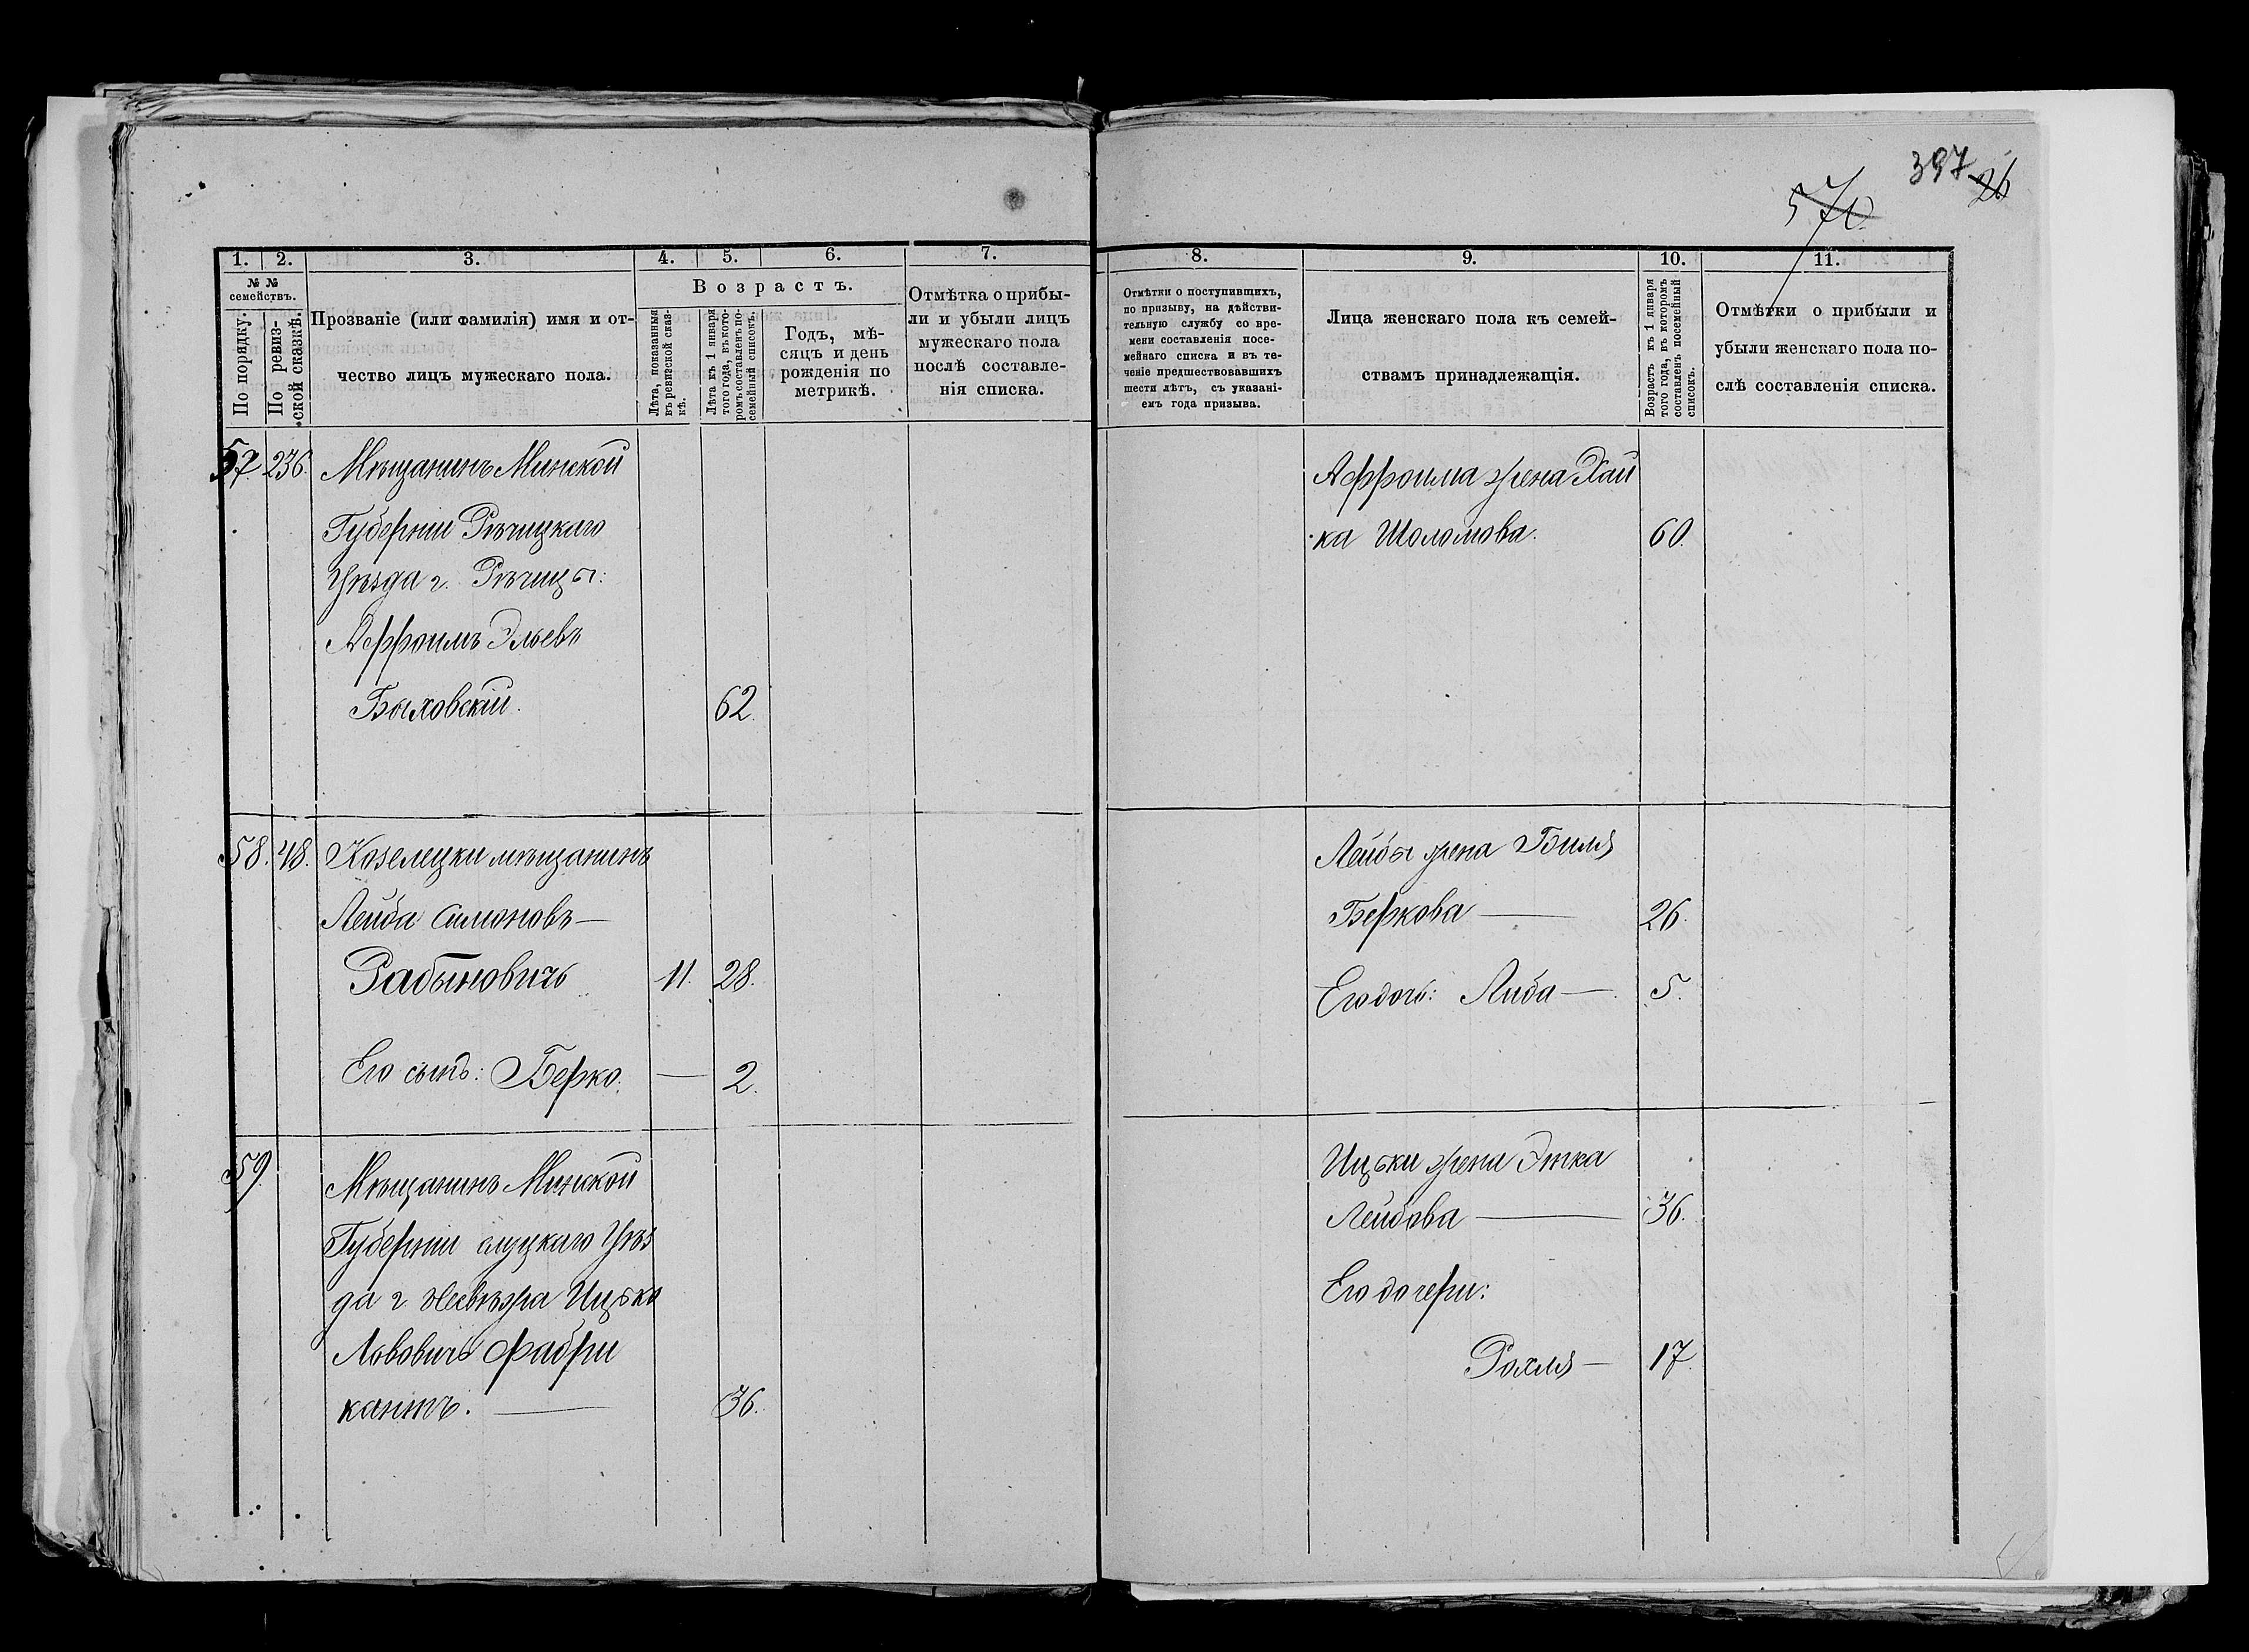 397 26
570
1. 2. 3. 4. 5. 6. 7.
№ №
семействъ.
По порядку.
По ревиз-
ской сказкѣ.
Прозваніе (или фамилія) имя и от-
чество лицъ мужескаго пола.
Возрастъ.
Лѣта, показанныя
въ ревизской сказ-
кѣ.
Лѣта къ 1 января
того года, въ кото-
ромъ составленъ по-
семейный списокъ.
Годъ, мѣ-
сяцъ и день
рожденія по
метрикѣ.
Отмѣтка о прибы-
ли и убыли лицъ
мужескаго пола
послѣ составле-
нія списка.
57. 236. Мѣщанинъ Минской
Губерніи Рѣчицкаго
Уѣзда г. Рѣчицы:
Афроимъ Эльевъ
Быховскій. 62.
58. 48. Козелецки мѣщанинъ
Лейба Симоновъ —
Рабыновичъ 11. 28.
Его сынъ: Берко. — 2.
59. Мѣщанинъ Минской
Губерніи слуцкаго Уѣз
да г. Несвѣжа Ицько
Лвовичъ Фабри
кантъ. — 36.
8. 9. 10. 11.
Отмѣтки о поступившихъ,
по призыву, на дѣйстви-
тельную службу со вре-
мени составленія посе-
мейнаго списка и въ те-
ченіе предшествовавшихъ
шести лѣтъ, съ указані-
емъ года призыва.
Лица женскаго пола къ семей-
ствамъ принадлежащія.
Возрастъ къ 1 января
того года, въ которомъ
составленъ посемейный
списокъ.
Отмѣтки о прибыли и
убыли женскаго пола по-
слѣ составленія списка.
Афроима жена Хай
ка Шоломова. 60.
Лейбы жена Биля
Беркова — 26.
Его дочь: Либа — 5.
Ицьки жена Этка
Лейбова — 36.
Его дочери:
Рохля — 17.